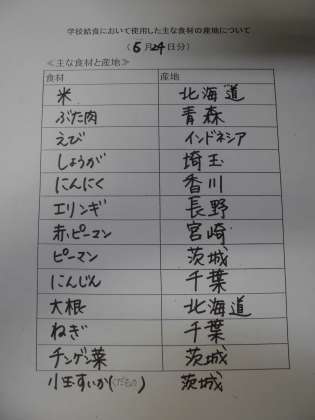 学校給食において使用した主な食材の産地について
(6月24日分)
≪主な食材と産地≫
食材 産地
米 北海道
ぶた肉 青森
えび インドネシア
しょうが 埼玉
にんにく 香川
エリンギ 長野
赤ピーマン 宮崎
ピーマン 茨城
にんじん 千葉
大根 北海道
ねぎ 千葉
チンゲン菜 茨城
小玉すいか(くだもの) 茨城